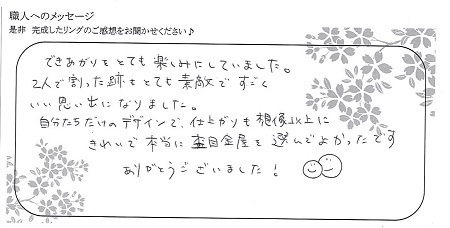 職人へのメッセージ
是非 完成したリングのご感想をお聞かせください♪
できあがりをとても楽しみにしていました。
2人で割った跡もとても素敵ですごく
いい思い出になりました。
自分たちだけのデザインで、仕上がりも想像以上に
きれいで本当に杢目金屋を選んでよかったです
ありがとうございました!